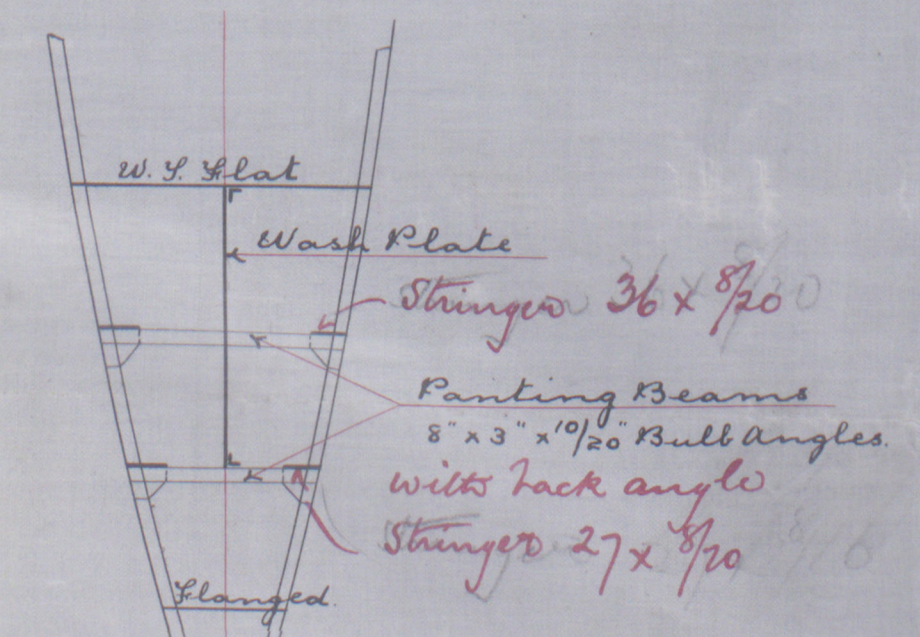 W. T. Flat
Wash Plate
Stringer 36 x 8/20
Panting Beams
8" x 3" x 10/20" Bulb Angles.
with back angle
Stringer 27 x 8/20
Flanged.